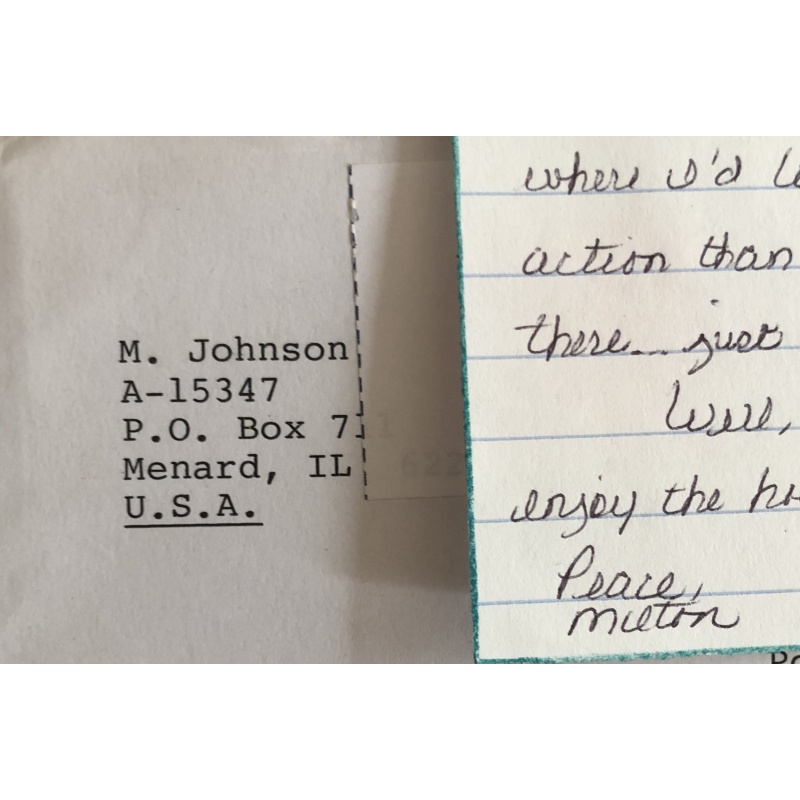 M. Johnson
A-15347
P.O. Box 711
Menard, IL 622
U.S.A.
where I'd
action than
there... just
Well,
enjoy the
Peace,
Milton